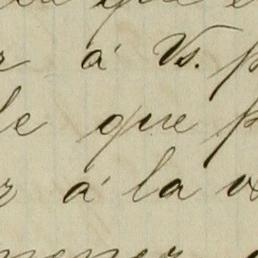 que
r á Vs. p
le que p
r á la v